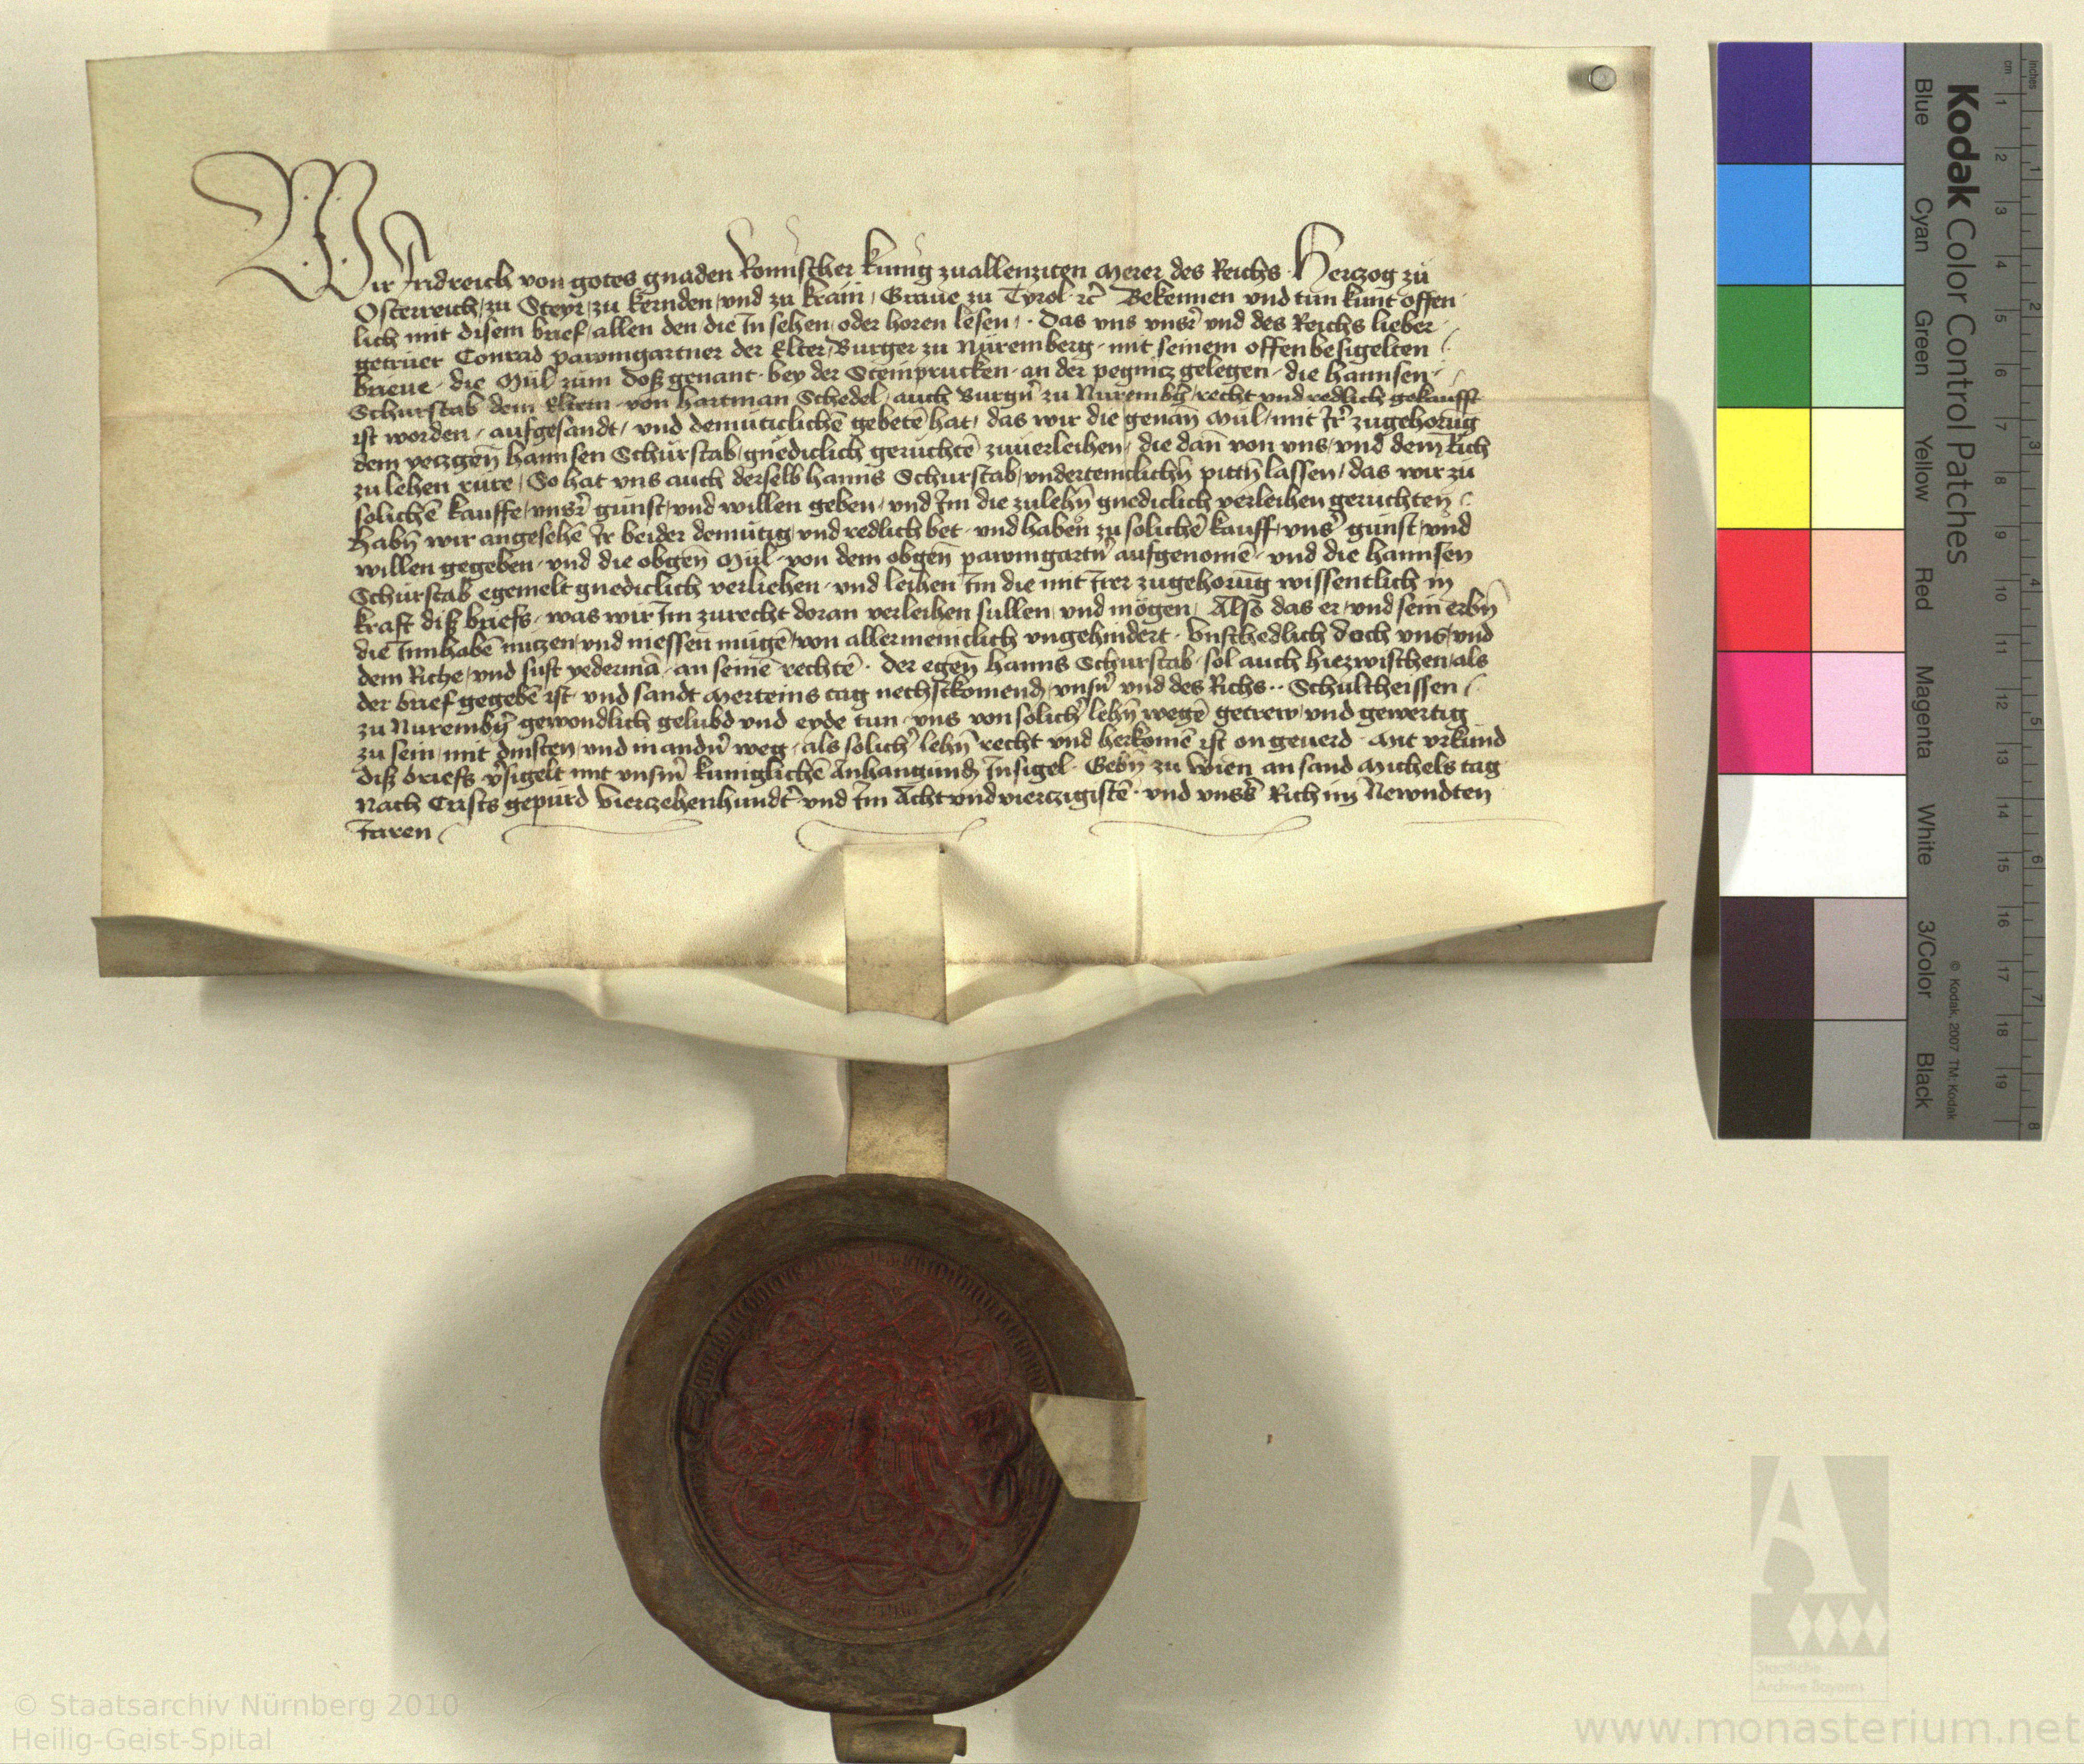 Wir Fridreich von gotes gnaden Romischer kunig zuallenziten Merer des Reichs Herczog zu
Osterreich, zu Steyr, zu kernden, und zu krain, Graue zu Tyrol ꝛc̃ Bekennen und tun kunt offen
lich mit disem brief, allen den die In sehen, oder horen lesen, Das vns vnsr̃ und des Reichs lieber
getruer Conrad pawmgartner der Elter, Burger zu Nuremberg, mit seinem offen besigelten
brieue, die Mül zum doß genant, bey der Steinprucken, an der pegnicz gelegen, die hannsen
Schurstab dem Eltern von hartman Schedel, auch Burgñ zu Nurembg̃, recht und redlich gekaufft
ist worden, aufgesandt, und demuticlichē gebetē hat, das wir die genañ Mül, mit Ir̃ zugehorūg
dem yeczgeñ hannsen Schurstab, gnediclich geruchtē zuuerleihen, die dañ von vns, und dem Rich
zu lehen rure, So hat vns auch derselb hanns Schurstab, undertenclichñ pittñ lassen, das wir zu
solichē kauffe, vnsr̃ gunst, und willen geben, und Im die zulehñ gnediclich verleihen geruchteñ
Habñ wir angesehē Ir beider demutig, und redlich bet, und haben zu solichē kauff, vns̃ gunst, und
willen gegeben, und die obgeñ Mül, von dem obgeñ pawmgartñ aufgenomē, und die hannsen
Schurstab egemelt gnediclich verliehen, und leihen Im die mit Irer zugehorūg wissentlich in
kraft diß briefs, was wir Im zurecht doran verleihen sullen, und mögen, Also das er, und sein erbñ
die Innhabē nutzen, und niessen mugē, von allermeniclich ungehindert, Vnschedlich doch vns, und
dem Riche, und sust yedermā, an seinē rechtē. Der egeñ hanns Schurstab, sol auch hiezwischen, als
der brief gegebē ist, und sandt Merteins tag nechstkomend, vnsñ und des Richs Schultheissen
zu Nurembg̃ gewondlich gelubd und eyde tun, vns von solich̃ lehñ wegē getrew, und gewertig
zu sein, mit dinsten, und in andñ weg, als solich̃ lehñ recht und herkomē ist on geuerd. Mit vrkund
diß briefs v̾sigelt mit vnsm̃ kuniglichē Anhangund Insigel. Gebñ zu Wien, an sand Michels tag
Nach Crists gepurd Vierczehenhundt̃ und Im Acht und vierczigistē, und vnss̃ Richs im Newndten
Jaren
Kodak Color Control Patches
Blue Cyan Green Yellow Red Magenta White 3/Color Black
© Kodak, 2007 TM: Kodak
inches 1 2 3 4 5 6 7 8
cm 1 2 3 4 5 6 7 8 9 10 11 12 13 14 15 16 17 18 19
Staatliche
Archive Bayerns
© Staatsarchiv Nürnberg 2010
Heilig-Geist-Spital
www.monasterium.net